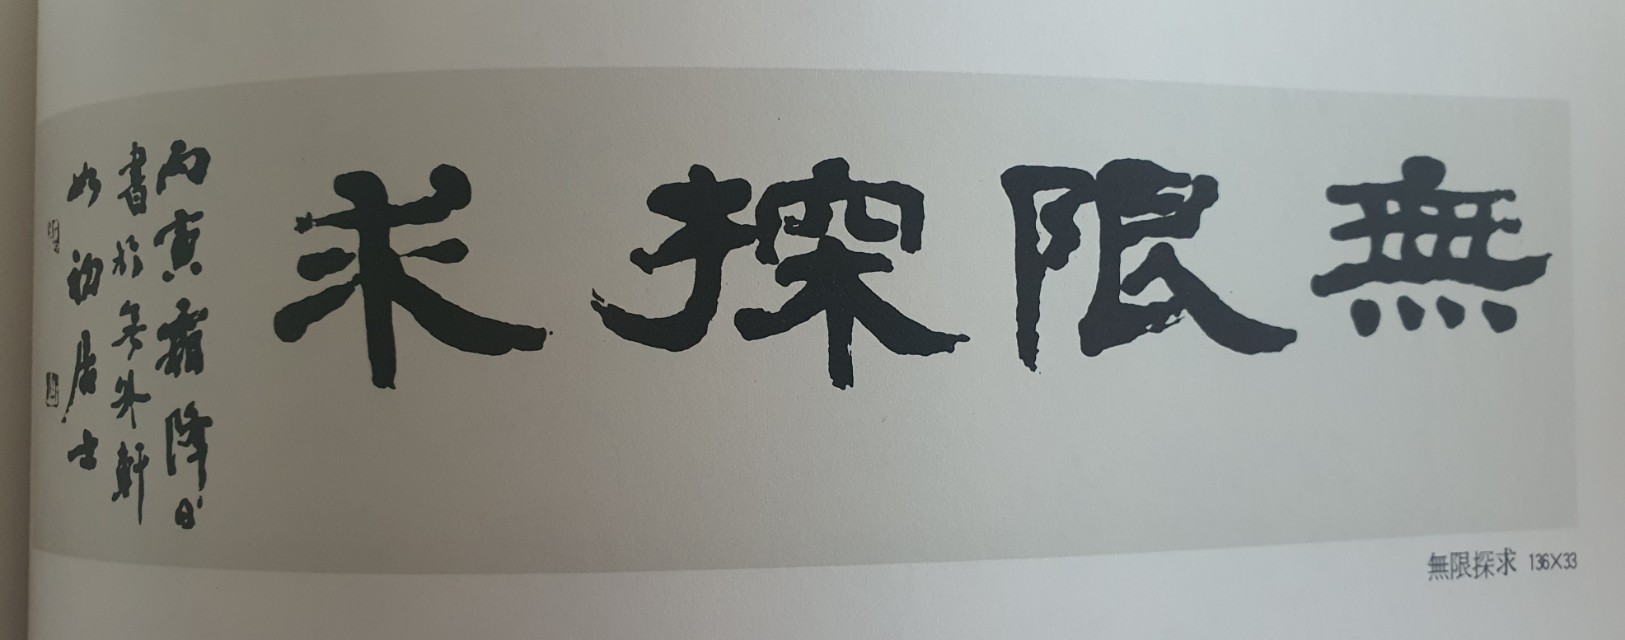 無限探求
丙寅霜降日
書於無外軒
如初居士
無限探求 136X33